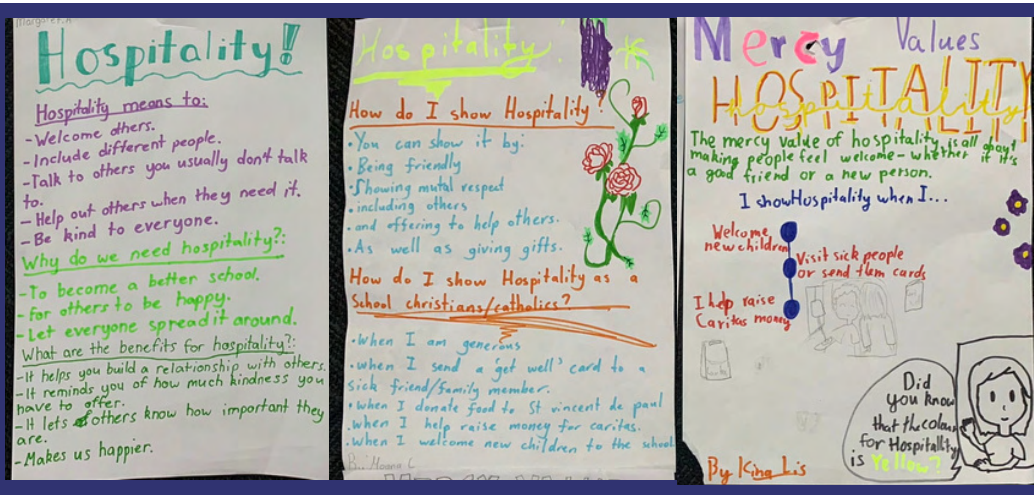 Margaret.A
Hospitality!
Hospitality means to:
- Welcome others.
- Include different people.
- Talk to others you usually don't talk
to.
- Help out others when they need it.
- Be kind to everyone.
Why do we need hospitality?:
- To become a better school.
- For others to be happy.
- Let everyone spread it around.
What are the benefits for hospitality?:
- It helps you build a relationship with others.
- It reminds you of how much kindness you
have to offer.
- It lets others know how important they
are.
- Makes us happier.
Hospitality
How do I show Hospitality?
• You can show it by:
• Being friendly
• Showing mutal respect
• including others
• and offering to help others.
• As well as giving gifts.
How do I show Hospitality as a
School christians/catholics?
• When I am generous
• when I send a 'get well' card to a
sick friend/family member.
• when I donate food to St vincent de paul
• when I help raise money for caritas.
• when I welcome new children to the school
By: Moana L
Mercy Values
HOSPITALITY
hospitality
The mercy value of hospitality is all about
making people feel welcome - whether if it's
a good friend or a new person.
I show Hospitality when I...
Welcome
new children
Visit sick people
or send them cards
I help raise
Caritas money
Did
you know
that the colour
for Hospitality
is Yellow?
By King Lis